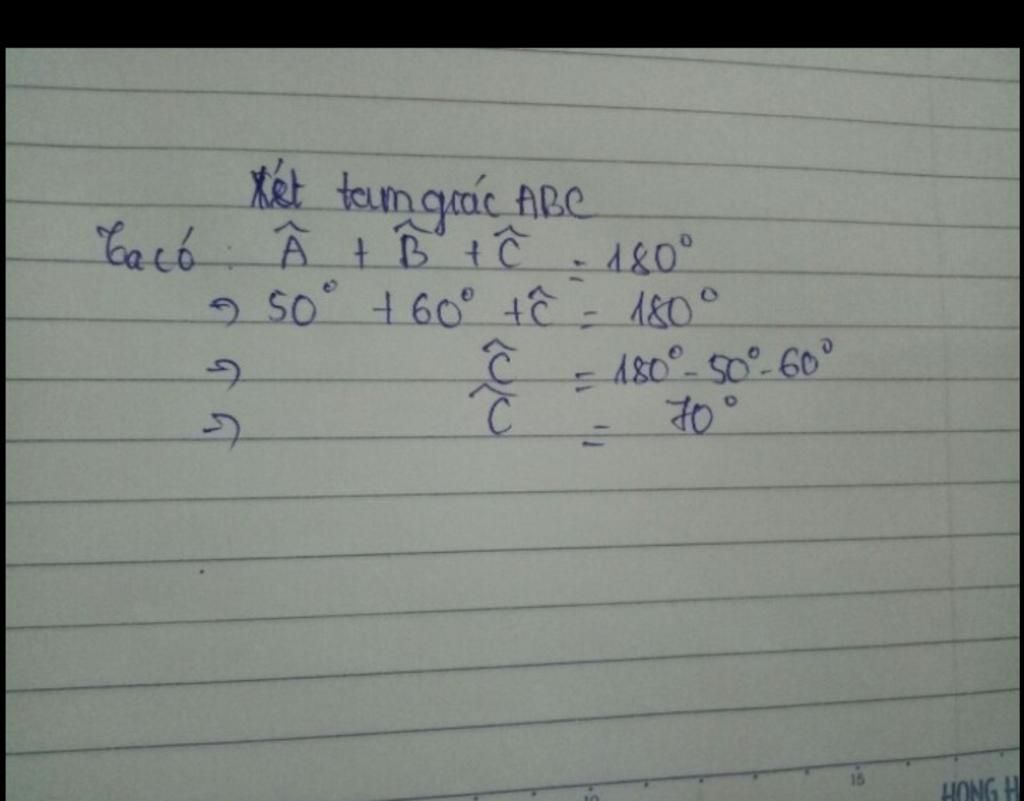 Xét tam giác ABC
Ta có : Â + B̂ + Ĉ = 180°
=> 50° + 60° + Ĉ = 180°
=> Ĉ = 180° - 50° - 60°
=> Ĉ = 70°
10 15
HONG H